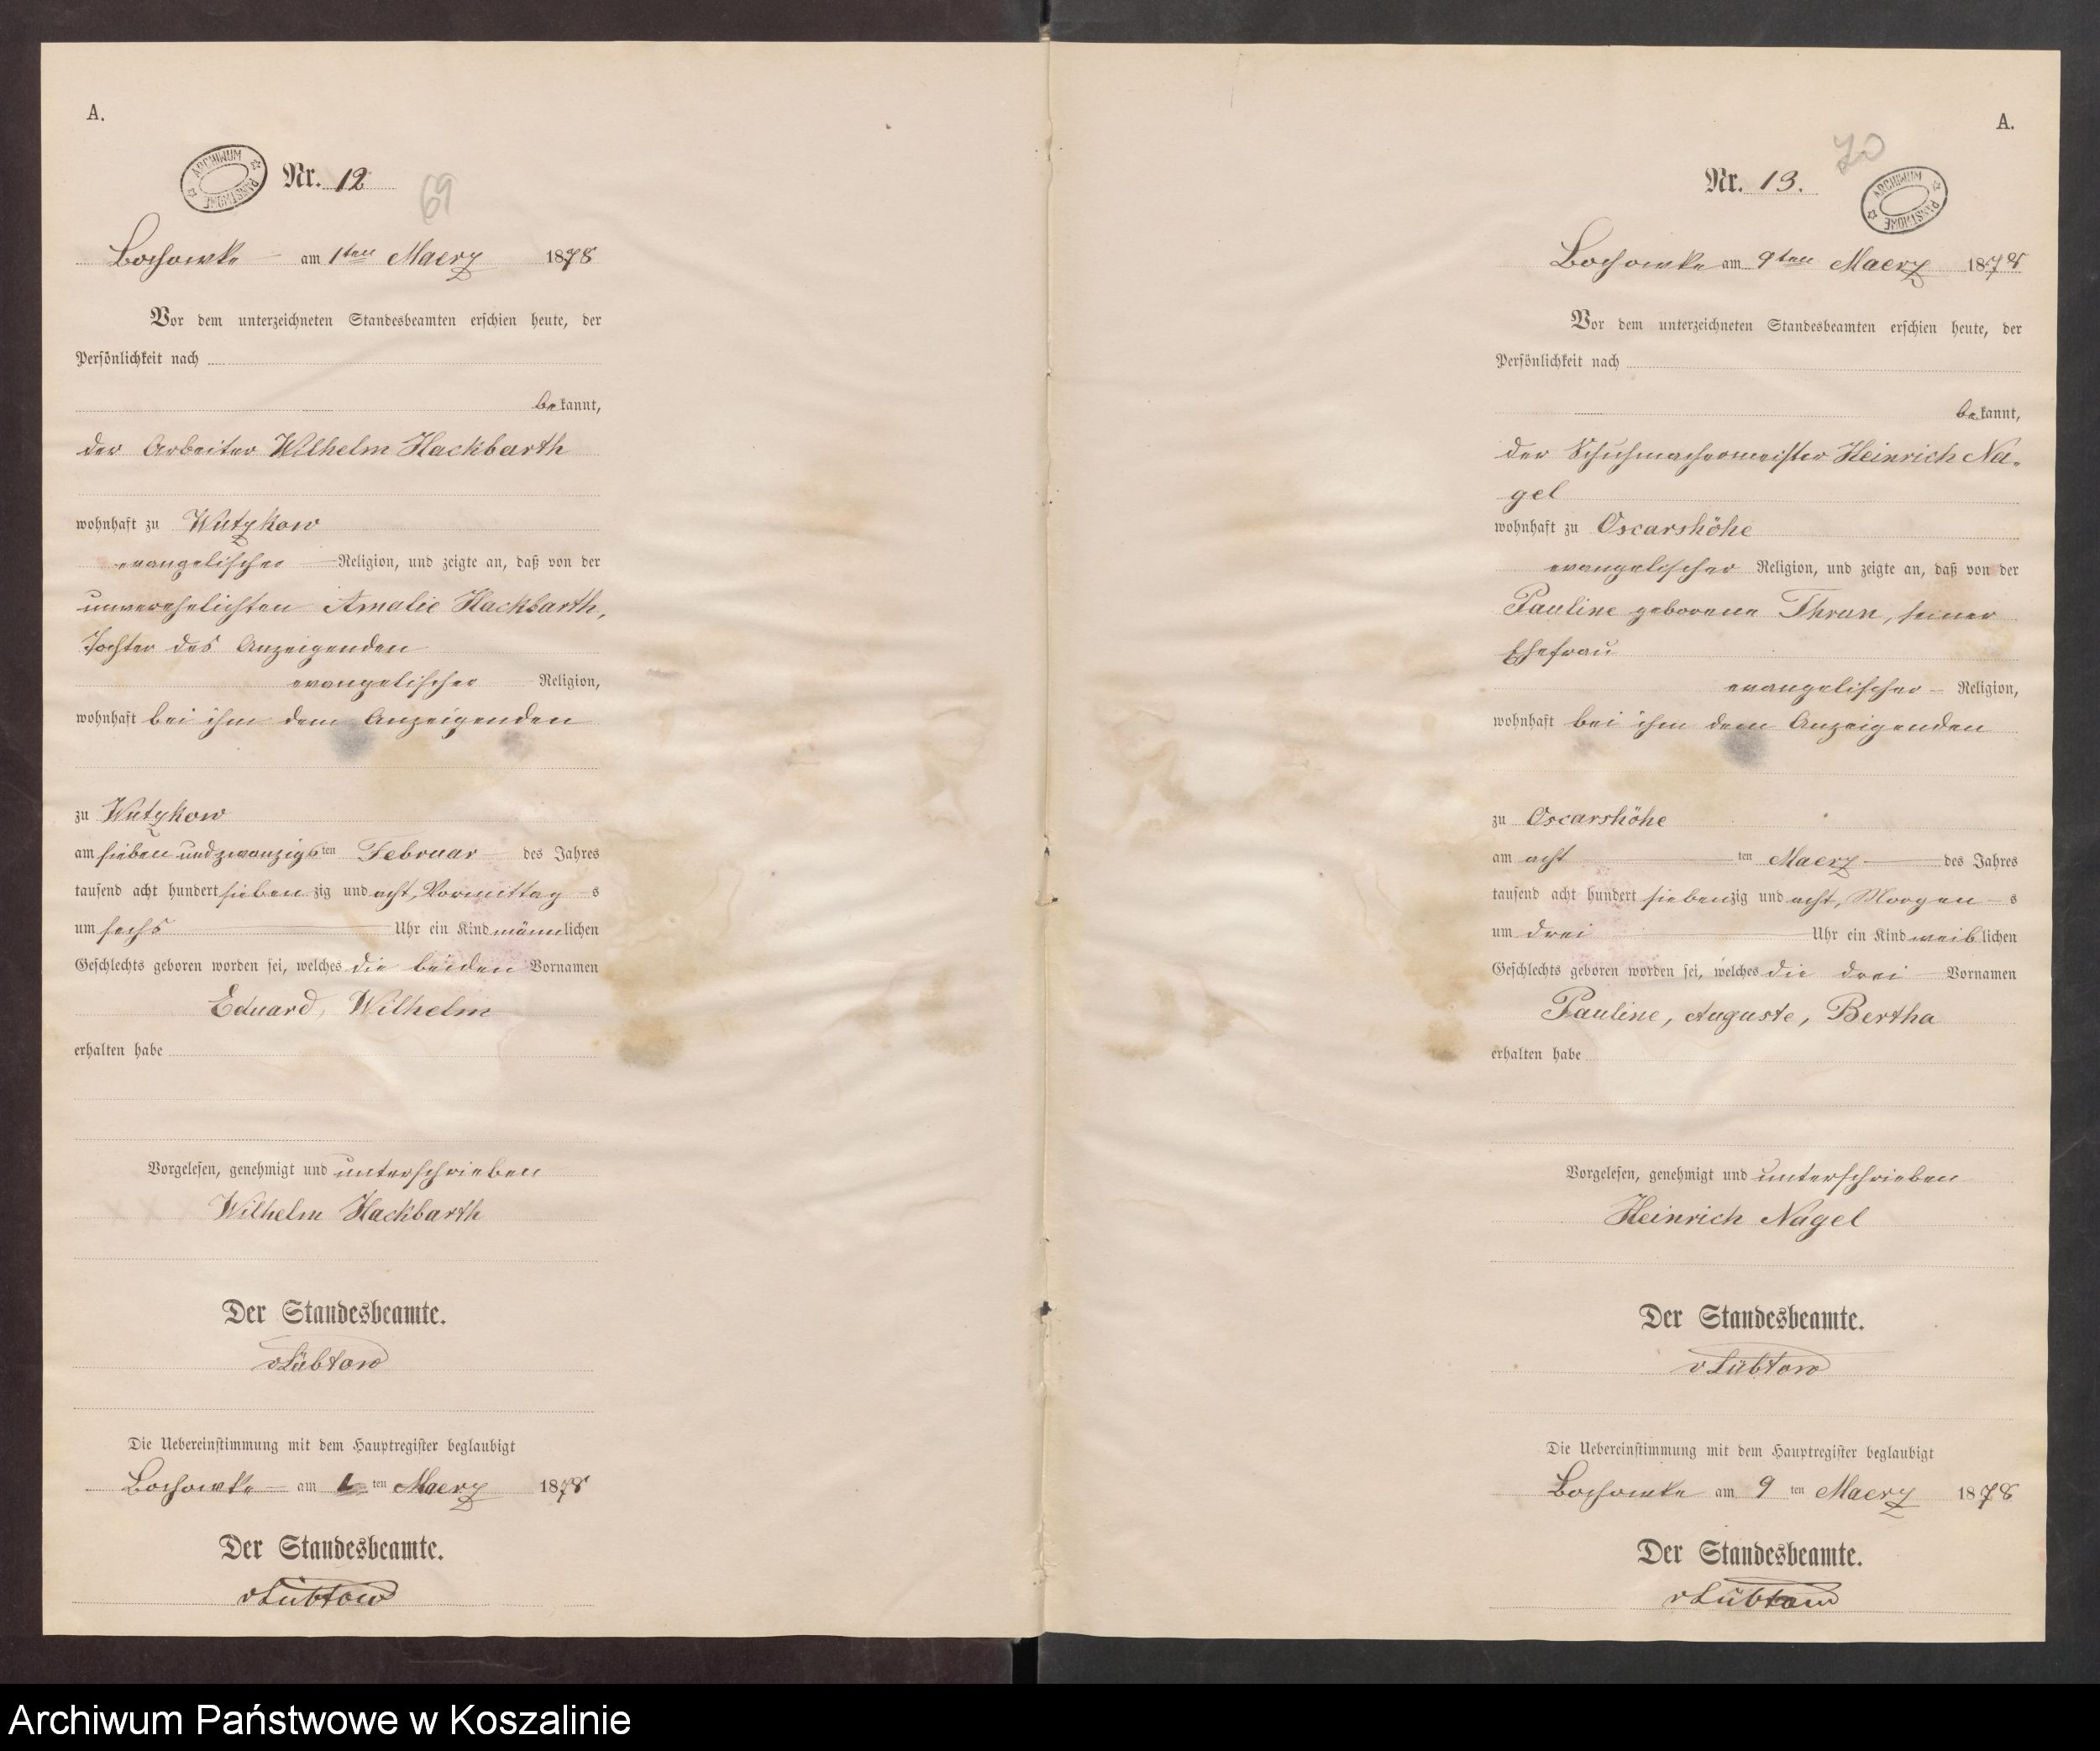 A.
ARCHIWUM PAŃSTWOWE
Nr. 12
69
Bochowke am 1ten Maerz 1878
Vor dem unterzeichneten Standesbeamten erschien heute, der
Persönlichkeit nach
bekannt,
der Arbeiter Wilhelm Hackbarth
wohnhaft zu Wutzkow
evangelischer Religion, und zeigte an, daß von der
unverehelichten Amalie Hackbarth,
Tochter des Anzeigenden
evangelischer Religion,
wohnhaft bei ihm dem Anzeigenden
zu Wutzkow
am sieben und zwanzigsten Februar des Jahres
tausend acht hundert siebenzig und acht, Vormittags
um sechs Uhr ein Kind männlichen
Geschlechts geboren worden sei, welches die beiden Vornamen
Eduard, Wilhelm
erhalten habe
Vorgelesen, genehmigt und unterschrieben
Wilhelm Hackbarth
Der Standesbeamte.
vLübtow
Die Uebereinstimmung mit dem Hauptregister beglaubigt
Bochowke am 1 ten Maerz 1878
Der Standesbeamte.
vLübtow
A.
70
Nr. 13.
ARCHIWUM PAŃSTWOWE
Bochowke am 9ten Maerz 1878
Vor dem unterzeichneten Standesbeamten erschien heute, der
Persönlichkeit nach
bekannt,
der Schuhmachermeister Heinrich Na-
gel
wohnhaft zu Oscarshöhe
evangelischer Religion, und zeigte an, daß von der
Pauline geborene Thrun, seiner
Ehefrau
evangelischer Religion,
wohnhaft bei ihm dem Anzeigenden
zu Oscarshöhe
am acht ten Maerz des Jahres
tausend acht hundert siebenzig und acht, Morgens
um drei Uhr ein Kind weiblichen
Geschlechts geboren worden sei, welches die drei Vornamen
Pauline, Auguste, Bertha
erhalten habe
Vorgelesen, genehmigt und unterschrieben
Heinrich Nagel
Der Standesbeamte.
vLübtow
Die Uebereinstimmung mit dem Hauptregister beglaubigt
Bochowke am 9 ten Maerz 1878
Der Standesbeamte.
vLübtow
Archiwum Państwowe w Koszalinie